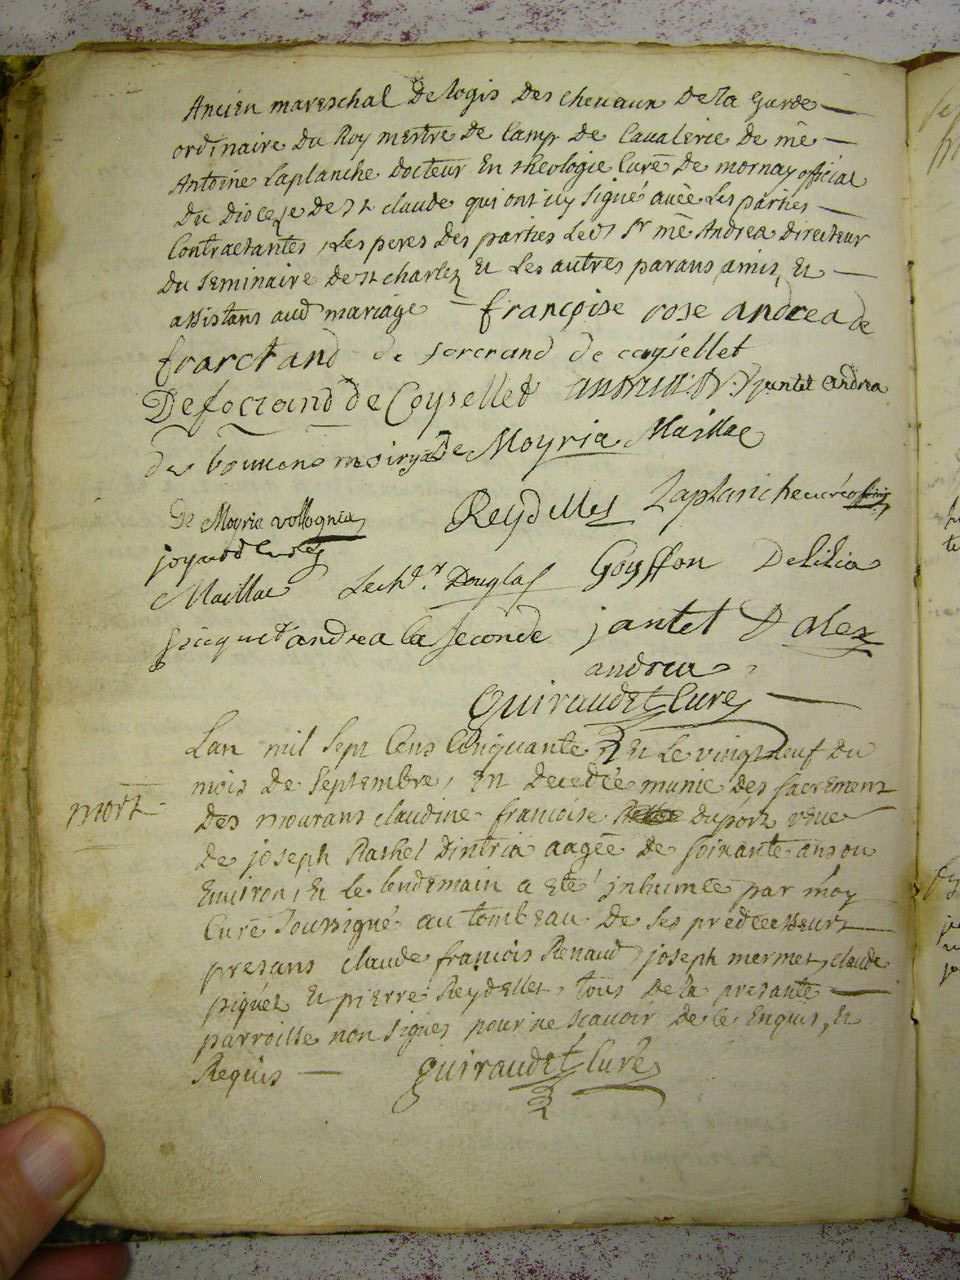 Ancien mareschal de logis des chevaux de la Garde
ordinaire du Roy mestre de Camp de Cavalerie de mè
Antoine Laplanche docteur En theologie Curé de mornay official
du dioceze de st claude qui ont icy signé avec Les parties
Contractantes, Les peres des parties Ledt Sr mè Andrea directeur
du seminaire de st charles Et Les autres parans amis, Et
assistans aud mariage françoise rose andrea de
de cayssellet
De focrand de Coysellet jantet andrea
De Moyria Maillac
De Moyria vollognia Reydellet Laplanche curé official
Maillac Le chr. Douglas Gouffon Delilia
andrea la seconde jantet Dalex
andrea
Guiraudet Curé
Lan mil sept Cens Cinquante Et Le vingt neuf du
mois de septembre, En decedée munie des sacremens
mort
des mourans claudine françoise duport veuve
de joseph Rashel Dintria aagée de soixante ans ou
Environ, Et le lendemain a eté inhumée par moy
Curé soussigné au tombeau de ses predecesseurs
presans claude francois Renaud, joseph mermet, claude
piquet Et pierre Reydellet, tous de la presante
parroisse non signés pour ne scavoir de ce Enquis, Et
Requis Guiraudet Curé